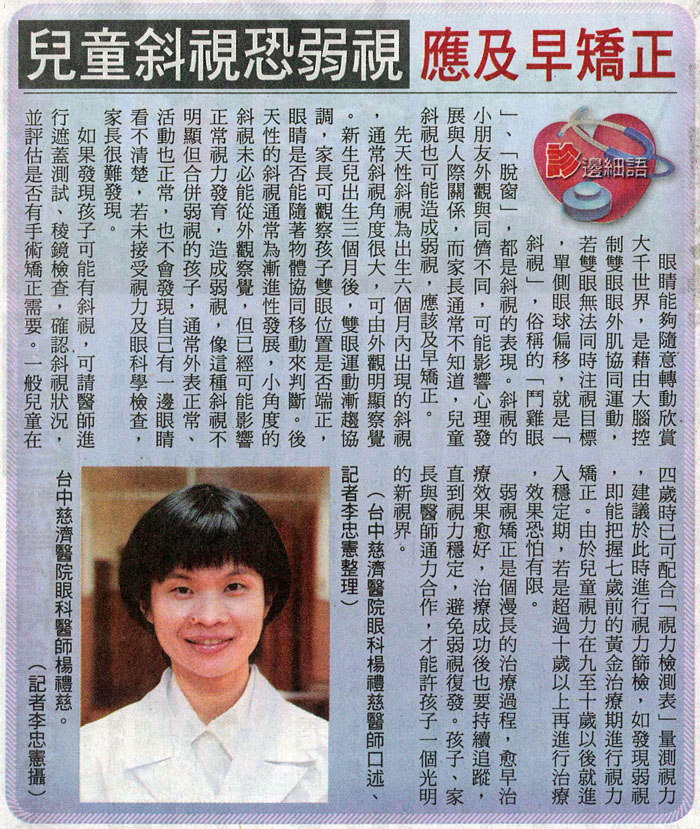 兒童斜視恐弱視 應及早矯正
診邊細語
眼睛能夠隨意轉動欣賞
大千世界，是藉由大腦控
制雙眼眼外肌協同運動，
若雙眼無法同時注視目標
，單側眼球偏移，就是「
斜視」，俗稱的「鬥雞眼
」、「脫窗」，都是斜視的表現。斜視的
小朋友外觀與同儕不同，可能影響心理發
展與人際關係，而家長通常不知道，兒童
斜視也可能造成弱視，應該及早矯正。
先天性斜視為出生六個月內出現的斜視
，通常斜視角度很大，可由外觀明顯察覺
。新生兒出生三個月後，雙眼運動漸趨協
調，家長可觀察孩子雙眼位置是否端正，
眼睛是否能隨著物體協同移動來判斷。後
天性的斜視通常為漸進性發展，小角度的
斜視未必能從外觀察覺，但已經可能影響
正常視力發育，造成弱視，像這種斜視不
明顯但合併弱視的孩子，通常外表正常、
活動也正常，也不會發現自己有一邊眼睛
看不清楚，若未接受視力及眼科學檢查，
家長很難發現。
如果發現孩子可能有斜視，可請醫師進
行遮蓋測試、稜鏡檢查，確認斜視狀況，
並評估是否有手術矯正需要。一般兒童在
四歲時已可配合「視力檢測表」量測視力
，建議於此時進行視力篩檢，如發現弱視
，即能把握七歲前的黃金治療期進行視力
矯正。由於兒童視力在九至十歲以後就進
入穩定期，若是超過十歲以上再進行治療
，效果恐怕有限。
弱視矯正是個漫長的治療過程，愈早治
療效果愈好，治療成功後也要持續追蹤，
直到視力穩定，避免弱視復發。孩子、家
長與醫師通力合作，才能許孩子一個光明
的新視界。
（台中慈濟醫院眼科楊禮慈醫師口述、
記者李忠憲整理）
台中慈濟醫院眼科醫師楊禮慈。
（記者李忠憲攝）